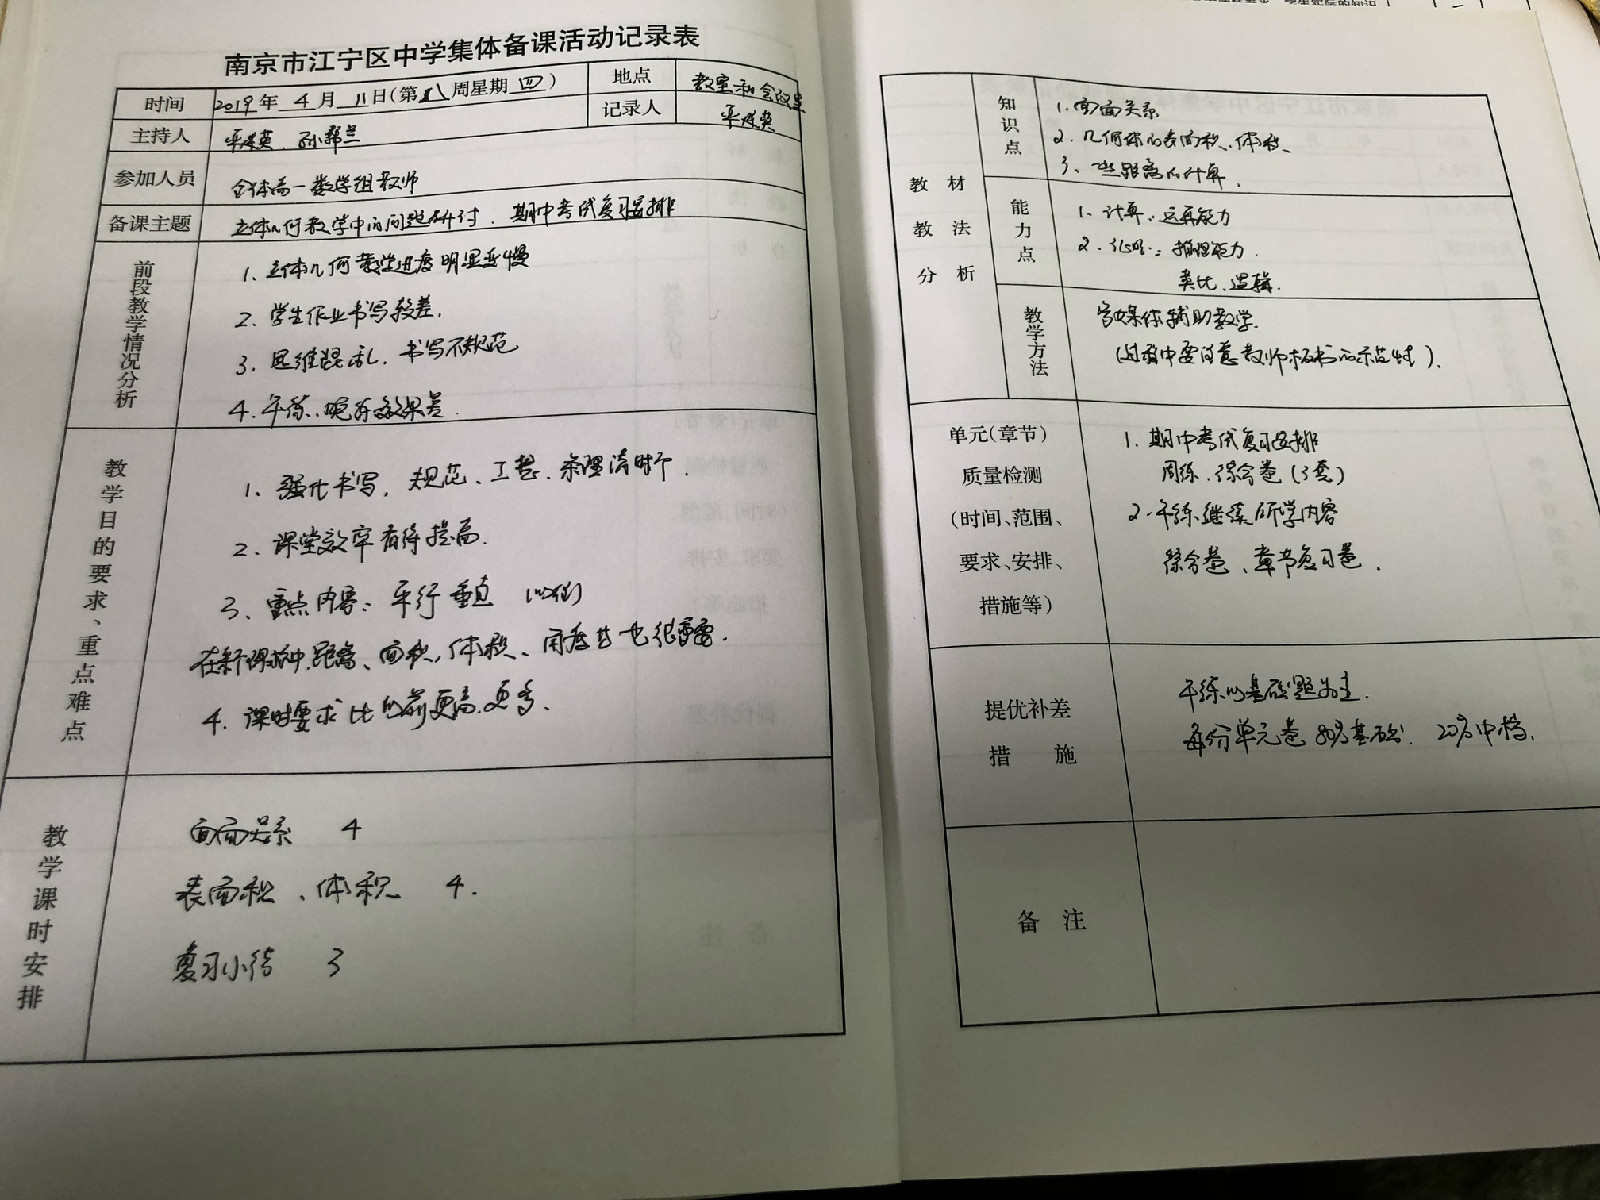 南京市江宁区中学集体备课活动记录表
时间 2019年 4月 11日(第八周星期四) 地点 教室和会议室
主持人 记录人
参加人员 全体高一数学组教师
备课主题 立体几何教学中的问题研讨、期中考试复习安排
前段教学情况分析
1、立体几何教学进度明显要慢
2、学生作业书写较差.
3、思维混乱,书写不规范
4、午练、晚练效果差.
教学目的要求、重点难点
1、强化书写,规范、工整、条理清晰.
2、课堂效率有待提高.
3、重点内容:平行 垂直 (以往)
在新课标中,距离、面积、体积、角度等也很重要.
4、课时要求比以前更高、更多、
教学课时安排
面面关系 4
表面积、体积 4.
复习小结 3
教材教法分析
知识点
1、面面关系
2、几何体的表面积、体积、
3、一些距离的计算.
能力点
1、计算:运算能力
2、证明:推理能力.
类比、逻辑.
教学方法
多媒体辅助教学.
(过程中要注意教师板书的示范性).
单元(章节)
质量检测
(时间、范围、
要求、安排、
措施等)
1、期中考试复习安排
周练、综合卷(3套)
2、午练继续所学内容
综合卷、章节复习卷.
提优补差
措 施
午练以基础题为主.
每份单元卷80%基础、20%中档.
备 注